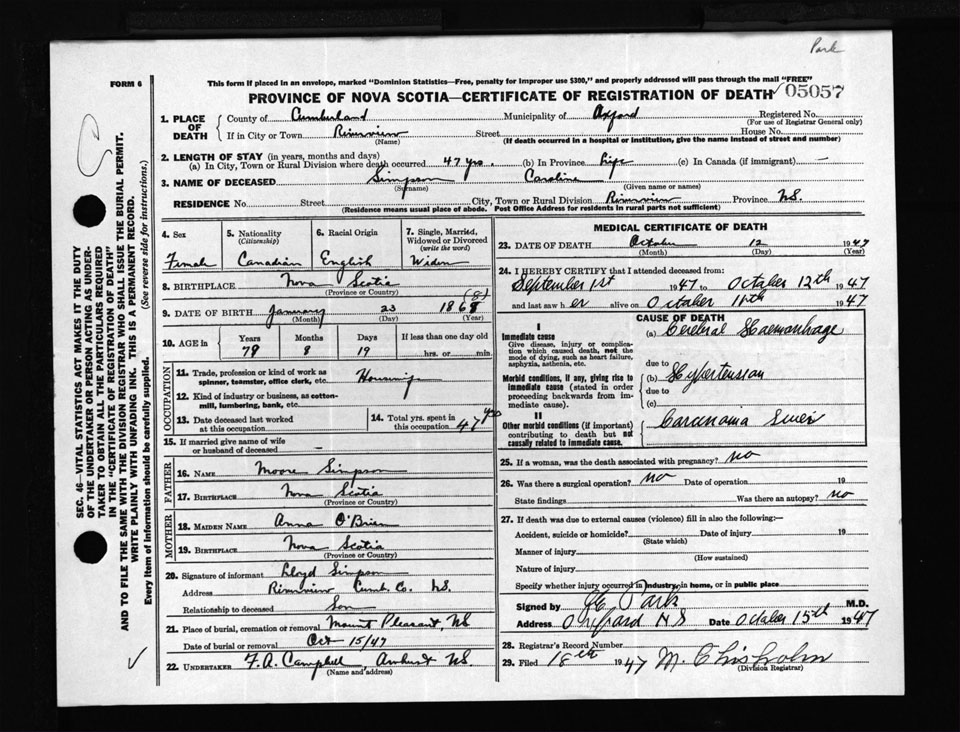 Park
FORM 6
This form if placed in an envelope, marked "Dominion Statistics—Free, penalty for improper use $300," and properly addressed will pass through the mail "FREE"
PROVINCE OF NOVA SCOTIA—CERTIFICATE OF REGISTRATION OF DEATH 05057
1. PLACE OF DEATH County of Cumberland Municipality of Oxford Registered No.
(For use of Registrar General only)
If in City or Town Riverview Street House No.
(Name) (If death occurred in a hospital or institution, give the name instead of street and number)
2. LENGTH OF STAY (in years, months and days)
(a) In City, Town or Rural Division where death occurred 47 yrs. (b) In Province Life (c) In Canada (if immigrant) —
3. NAME OF DECEASED Simpson Caroline
(Surname) (Given name or names)
RESIDENCE No. Street City, Town or Rural Division Riverview Province N.S.
(Residence means usual place of abode. Post Office Address for residents in rural parts not sufficient)
4. Sex 5. Nationality (Citizenship) 6. Racial Origin 7. Single, Married, Widowed or Divorced (write the word)
Female Canadian English Widow
8. BIRTHPLACE Nova Scotia
(Province or Country)
9. DATE OF BIRTH January 23 1868 (8)
(Month) (Day) (Year)
10. AGE in Years Months Days If less than one day old
78 8 19 hrs. or min.
OCCUPATION
11. Trade, profession or kind of work as spinner, teamster, office clerk, etc.
12. Kind of industry or business, as cotton-mill, lumbering, bank, etc.
13. Date deceased last worked at this occupation 14. Total yrs. spent in this occupation 47 yrs
15. If married give name of wife or husband of deceased —
FATHER
16. NAME Moore Simpson
17. BIRTHPLACE Nova Scotia
(Province or Country)
MOTHER
18. MAIDEN NAME Anna O'Brien
19. BIRTHPLACE Nova Scotia
(Province or Country)
20. Signature of informant Lloyd Simpson
Address Riverview Cumb. Co. N.S.
Relationship to deceased Son
21. Place of burial, cremation or removal Mount Pleasant, N.S.
Date of burial or removal Oct 15/47
22. UNDERTAKER F. A. Campbell, Amherst N.S.
(Name and address)
MEDICAL CERTIFICATE OF DEATH
23. DATE OF DEATH October 12 1947
(Month) (Day)
24. I HEREBY CERTIFY that I attended deceased from:
September 1st 1947 to October 12th 1947
and last saw her alive on October 11th 1947
CAUSE OF DEATH
I
Immediate cause (a) Cerebral Haemorrhage
Give disease, injury or complication which caused death, not the mode of dying, such as heart failure, asphyxia, asthenia, etc.
due to
Morbid conditions, if any, giving rise to immediate cause (stated in order proceeding backwards from immediate cause). (b) Hypertension
due to
(c)
II
Other morbid conditions (if important) contributing to death but not causally related to immediate cause.
25. If a woman, was the death associated with pregnancy? no
26. Was there a surgical operation? no Date of operation 19
State findings Was there an autopsy? no
27. If death was due to external causes (violence) fill in also the following:—
Accident, suicide or homicide? Date of injury 19
(State which)
Manner of injury
(How sustained)
Nature of injury
Specify whether injury occurred in industry, in home, or in public place
Signed by Park M.D.
Address Oxford N S Date October 15th 1947
28. Registrar's Record Number
29. Filed 18th 1947 M. Chisholm
(Division Registrar)
SEC. 46—VITAL STATISTICS ACT MAKES IT THE DUTY
OF THE UNDERTAKER OR PERSON ACTING AS UNDER-
TAKER TO OBTAIN ALL THE PARTICULARS REQUIRED
IN THE "CERTIFICATE OF REGISTRATION OF DEATH"
AND TO FILE THE SAME WITH THE DIVISION REGISTRAR WHO SHALL ISSUE THE BURIAL PERMIT.
WRITE PLAINLY WITH UNFADING INK. THIS IS A PERMANENT RECORD.
Every item of information should be carefully supplied. (See reverse side for instructions.)